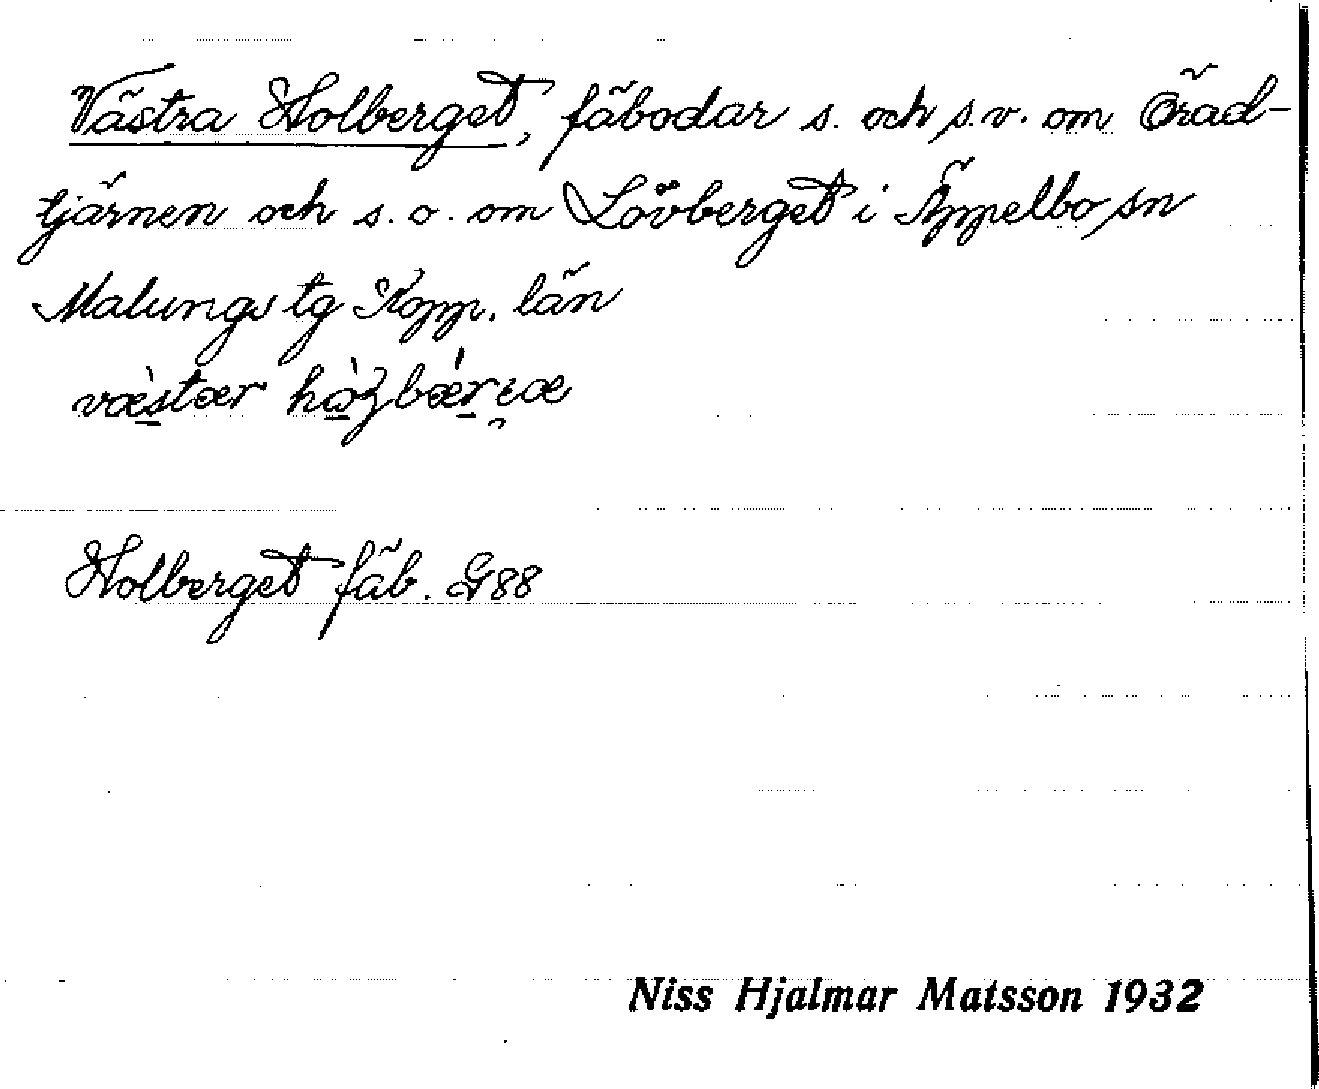 Västra Holberget, fäbodar s. och s.v. om Örad-
tjärnen och s.o. om Lövberget i Äppelbo sn
Malungs tg Kopp. län
Holberget fäb. G88
Niss Hjalmar Matsson 1932